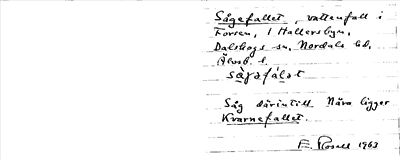 Sågefallet, vattenfall i
Forsen, i Hallersbyn,
Dalskogs sn, Nordals hd,
Älvsb. l.
Såg därintill Nära ligger
Kvarnefallet.
E. Rosell 1963